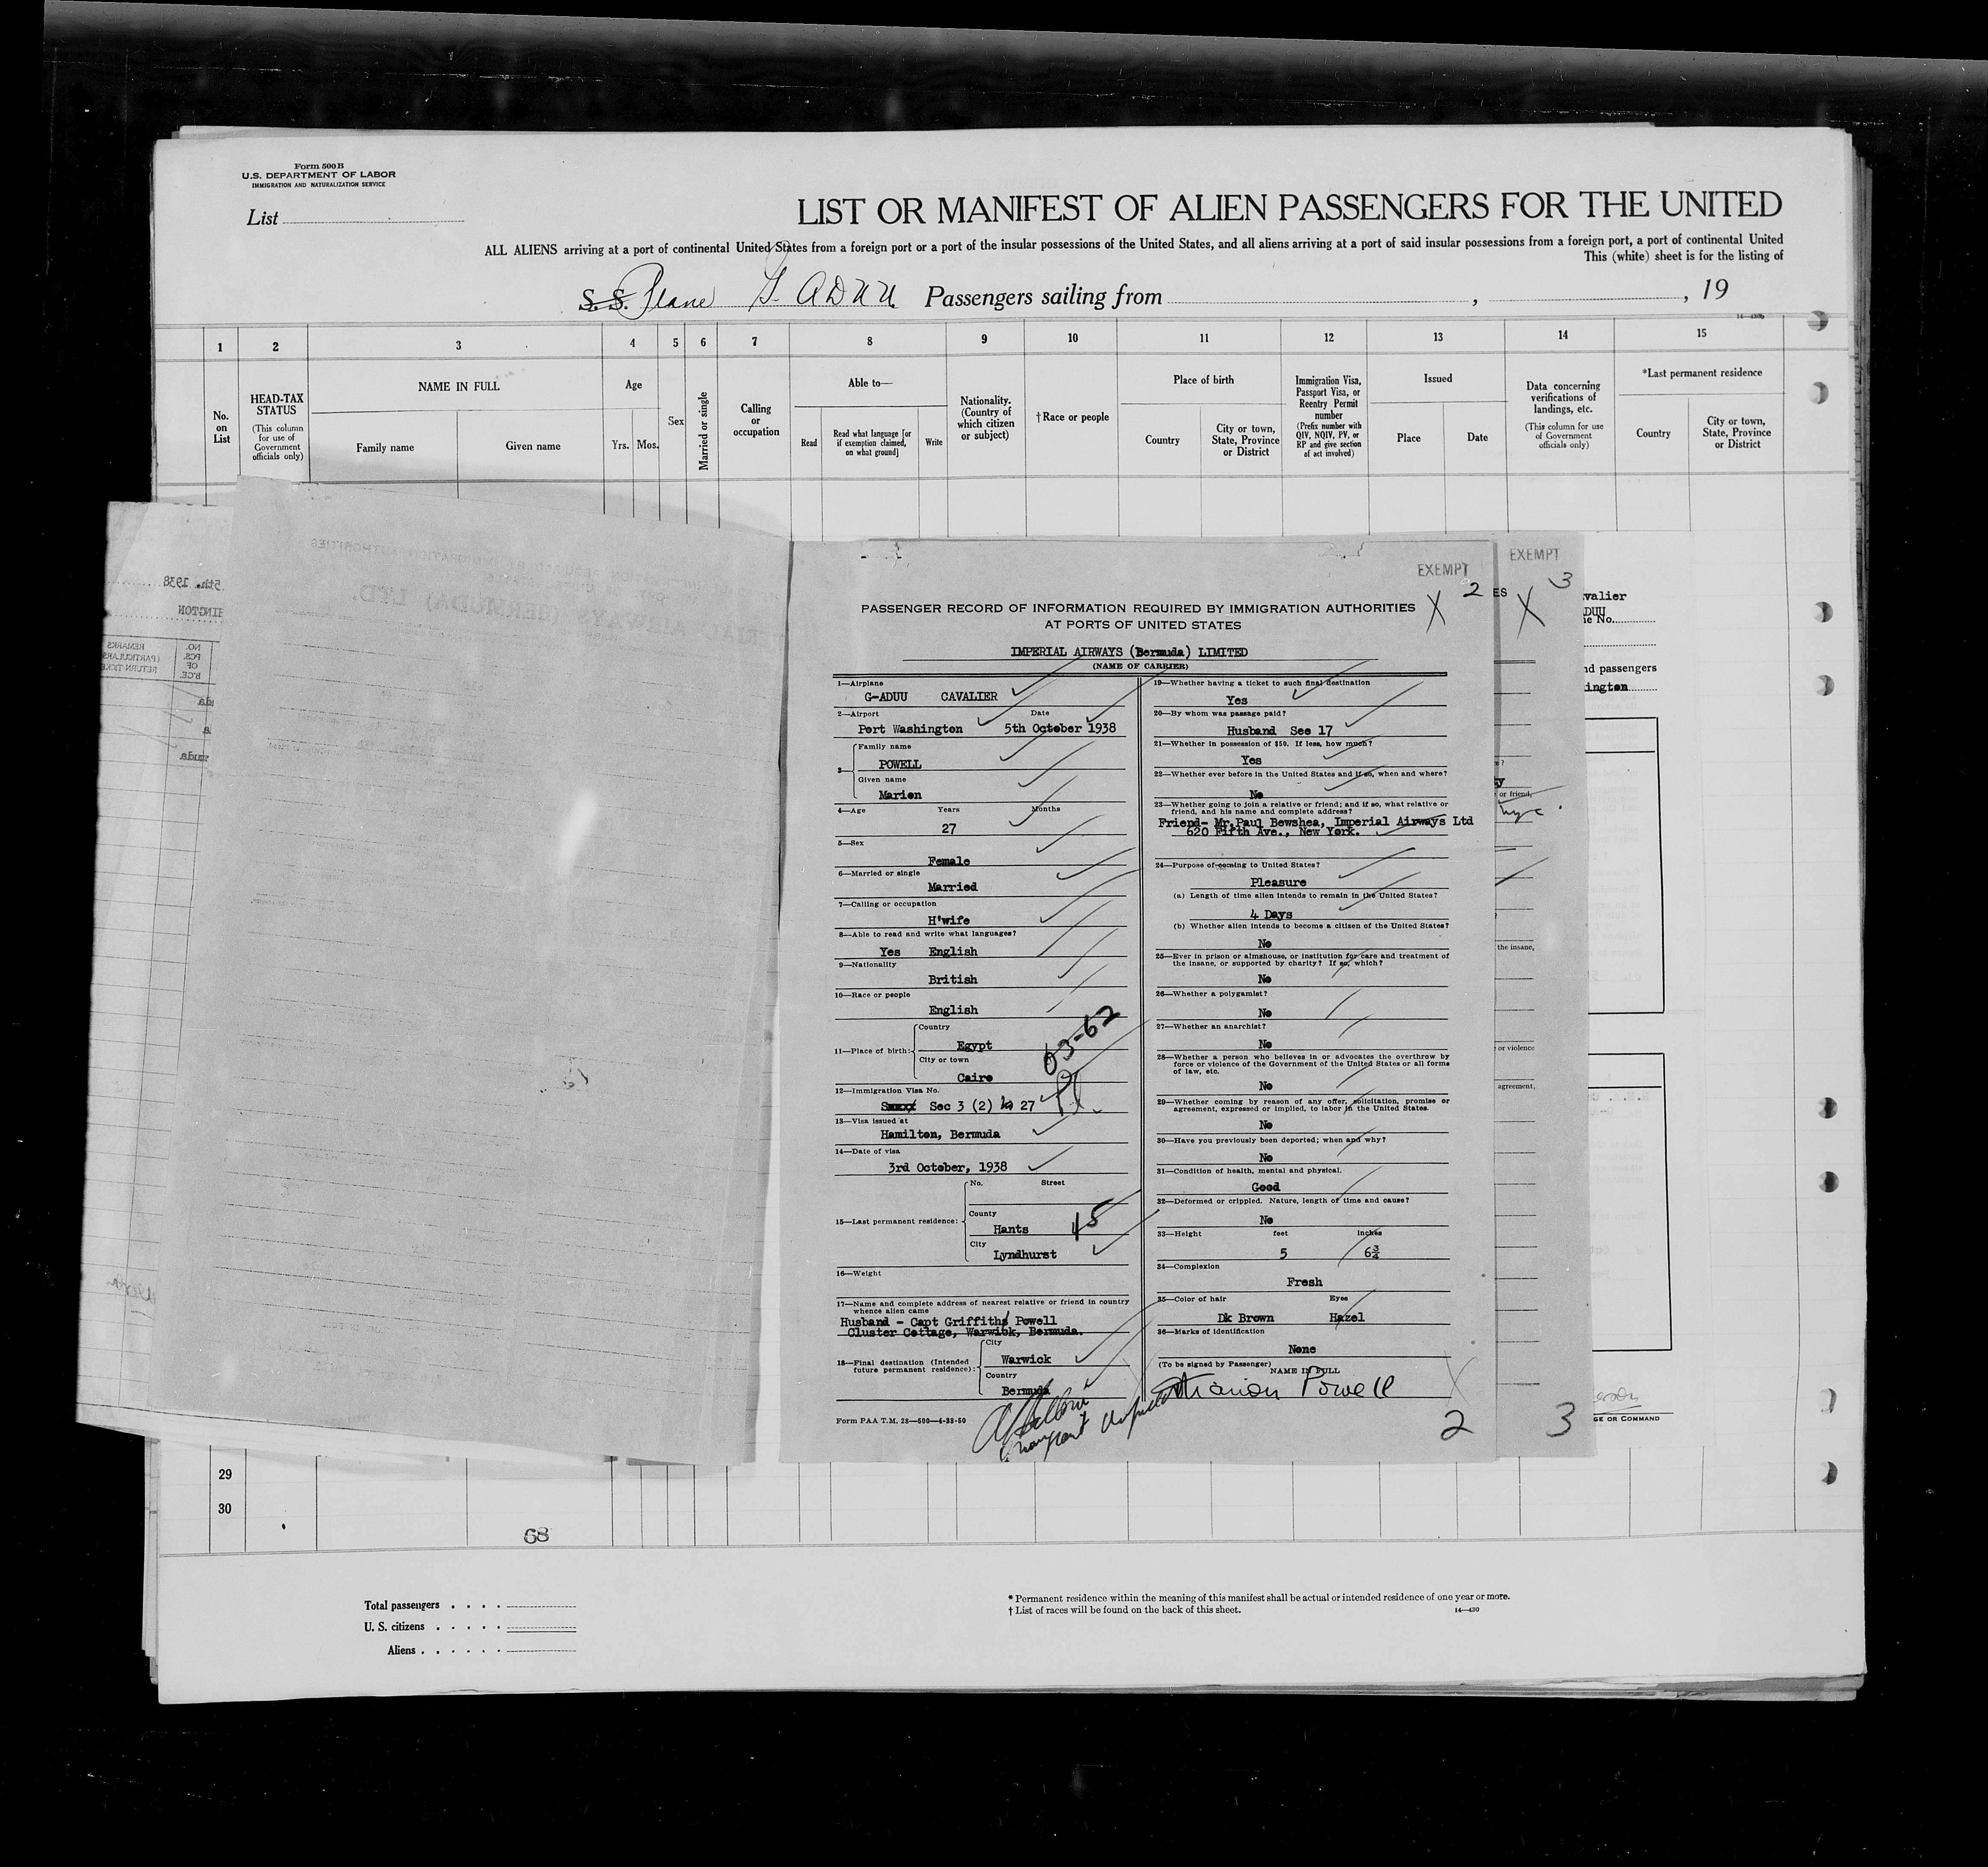 Form 500B
U.S. DEPARTMENT OF LABOR
IMMIGRATION AND NATURALIZATION SERVICE
List
LIST OR MANIFEST OF ALIEN PASSENGERS FOR THE UNITED
ALL ALIENS arriving at a port of continental United States from a foreign port or a port of the insular possessions of the United States, and all aliens arriving at a port of said insular possessions from a foreign port, a port of continental United
This (white) sheet is for the listing of
S.S. Plane G ADUU Passengers sailing from , , 19
1 2 3 4 5 6 7 8 9 10 11 12 13 14 15
No. on List
HEAD-TAX STATUS
(This column for use of Government officials only)
NAME IN FULL
Family name Given name
Age
Yrs. Mos.
Sex
Married or single
Calling or occupation
Able to—
Read
Read what language [or if exemption claimed, on what ground]
Write
Nationality. (Country of which citizen or subject)
†Race or people
Place of birth
Country
City or town, State, Province or District
Immigration Visa, Passport Visa, or Reentry Permit number
(Prefix number with QIV, NQIV, PV, or RP and give section of act involved)
Issued
Place Date
Data concerning verifications of landings, etc.
(This column for use of Government officials only)
*Last permanent residence
Country
City or town, State, Province or District
EXEMPT
2
X
PASSENGER RECORD OF INFORMATION REQUIRED BY IMMIGRATION AUTHORITIES
AT PORTS OF UNITED STATES
IMPERIAL AIRWAYS (Bermuda) LIMITED
(NAME OF CARRIER)
1—Airplane
G-ADUU CAVALIER
2—Airport Date
Port Washington 5th October 1938
3—
Family name
POWELL
Given name
Marion
4—Age Years Months
27
5—Sex
Female
6—Married or single
Married
7—Calling or occupation
H'wife
8—Able to read and write what languages?
Yes English
9—Nationality
British
10—Race or people
English
11—Place of birth:
Country
Egypt
City or town
Cairo
63-62
12—Immigration Visa No.
Sec 3 (2) 27
13—Visa issued at
Hamilton, Bermuda
14—Date of visa
3rd October, 1938
15—Last permanent residence:
No. Street
County
Hants
City
Lyndhurst
45
16—Weight
17—Name and complete address of nearest relative or friend in country
whence alien came
Husband - Capt Griffiths Powell
Cluster Cottage, Warwick, Bermuda.
18—Final destination (Intended
future permanent residence):
City
Warwick
Country
Bermuda
Form PAA T.M. 28—500—4-38-50
19—Whether having a ticket to such final destination
Yes
20—By whom was passage paid?
Husband See 17
21—Whether in possession of $50. If less, how much?
Yes
22—Whether ever before in the United States and if so, when and where?
No
23—Whether going to join a relative or friend; and if so, what relative or
friend, and his name and complete address?
Friend- Mr.Paul Bewshea, Imperial Airways Ltd
620 Fifth Ave., New York.
24—Purpose of coming to United States?
Pleasure
(a) Length of time alien intends to remain in the United States?
4 Days
(b) Whether alien intends to become a citizen of the United States?
No
25—Ever in prison or almshouse, or institution for care and treatment of
the insane, or supported by charity? If so, which?
No
26—Whether a polygamist?
No
27—Whether an anarchist?
No
28—Whether a person who believes in or advocates the overthrow by
force or violence of the Government of the United States or all forms
of law, etc.
No
29—Whether coming by reason of any offer, solicitation, promise or
agreement, expressed or implied, to labor in the United States.
No
30—Have you previously been deported; when and why?
No
31—Condition of health, mental and physical.
Good
32—Deformed or crippled. Nature, length of time and cause?
No
33—Height feet inches
5 6¾
34—Complexion
Fresh
35—Color of hair Eyes
Dk Brown Hazel
36—Marks of identification
None
(To be signed by Passenger)
NAME IN FULL
Marion Powell
2
EXEMPT
3
X
ES
or friend,
nyc
the insane,
or violence
agreement,
3
valier
DUU
ne No.
nd passengers
ington
GE OR COMMAND
29
30
68
Total passengers
U. S. citizens
Aliens
* Permanent residence within the meaning of this manifest shall be actual or intended residence of one year or more.
† List of races will be found on the back of this sheet.
14—430